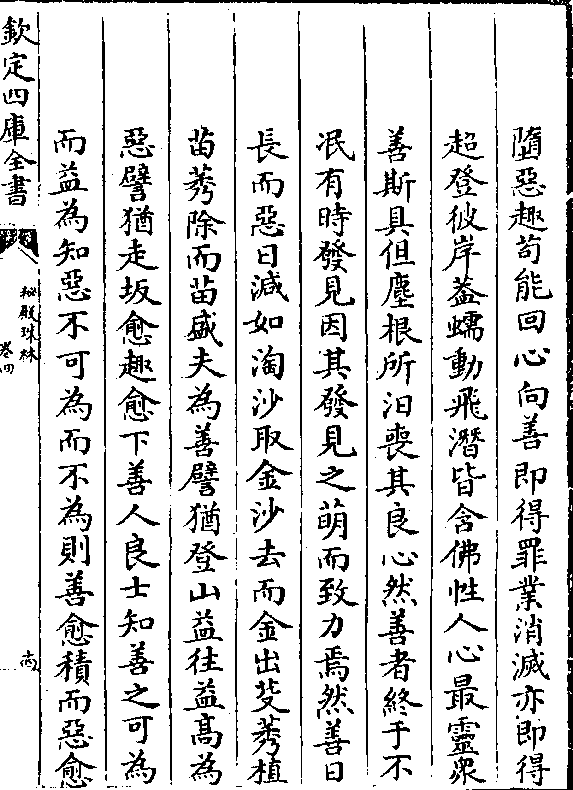 墮惡趣苟能回心向善即得罪業消滅亦即得
超登彼岸葢蠕動飛潛皆含佛性人心最靈衆
善斯具但塵根所汩喪其良心然善者終于不
泯有時發見因其發見之萌而致力焉然善日
長而惡日減如淘沙取金沙去而金出芟莠植
苗莠除而苗盛夫為善譬猶登山益往益髙為
惡譬猶走坂愈趣愈下善人良士知善之可為
而益為知惡不可為而不為則善愈積而惡愈
欽定四庫全書
秘殿珠林
卷四